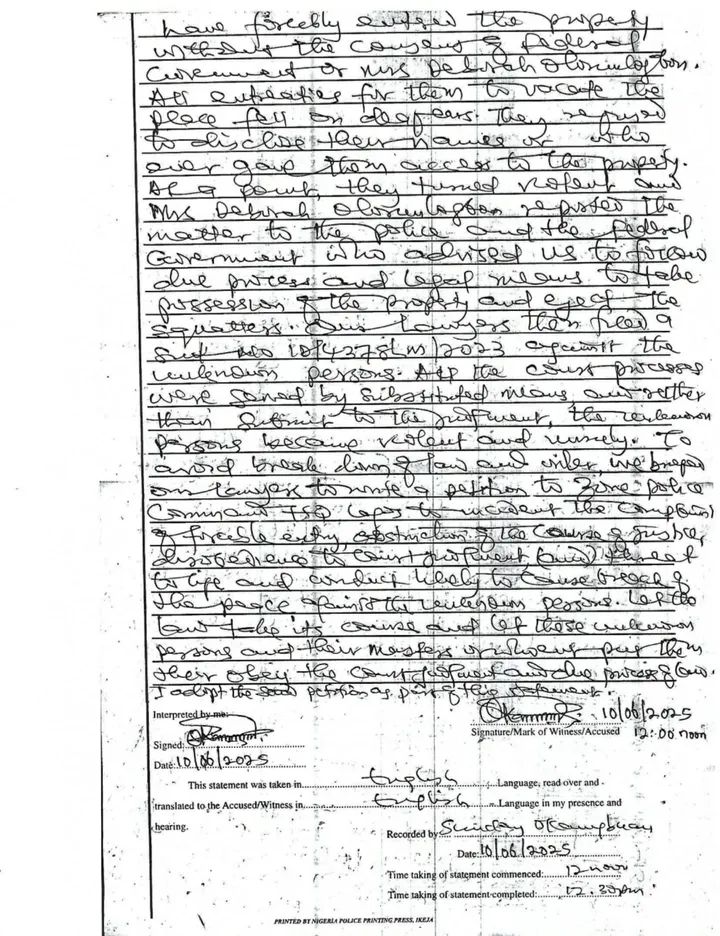 have forcebly entered the property
without the consent of Federal
Government or Mrs Deborah Olorunlogbon.
All entreaties for them to vacate the
place fell on deaf ears. They refused
to disclose their names or who
ever gave them access to the property.
At a point, they turned violent and
Mrs Deborah Olorunlogbon reported the
matter to the police and the Federal
Government who advised us to follow
due process and legal means to take
possession of the property and eject the
squatters. Our Lawyers then filed a
Suit No against the
unknown persons. All the court processes
were served by substituted means, and rather
than submit to the judgment, the unknown
persons became violent and unruly. To
avoid break down of law and order, we briefed
our lawyers to write a petition to Zone police
Command Lagos to the complaint
of forcible entry, obstruction of the course of justice,
disobedience to court judgment, threat
to life and conduct likely to cause breach of
the peace against the unknown persons. Let the
law take its course and let those unknown
persons and their masters or whoever put them
there obey the court judgment and due process of law.
I adopt the said petition as part of this statement.
Interpreted by me:
10/06/2025
Signature/Mark of Witness/Accused 12:00 noon
Signed:
Date: 10/06/2025
This statement was taken in English Language, read over and
translated to the Accused/Witness in English Language in my presence and
hearing.
Recorded by Sunday
Date: 10/06/2025
Time taking of statement commenced: 12 noon
Time taking of statement completed: 12.30pm
PRINTED BY NIGERIA POLICE PRINTING PRESS, IKEJA